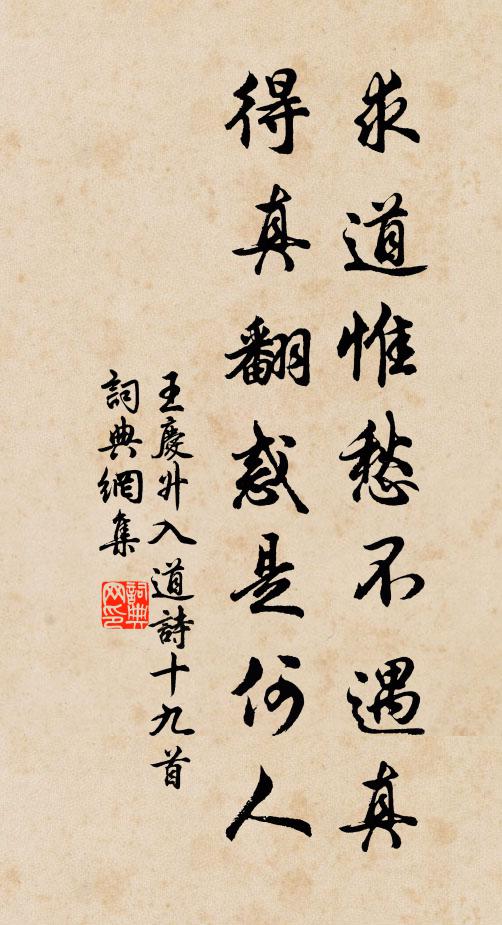 求道惟愁不遇真
得真翻惑是何人
王慶升入道詩十九首
詞典網集
詞典网印